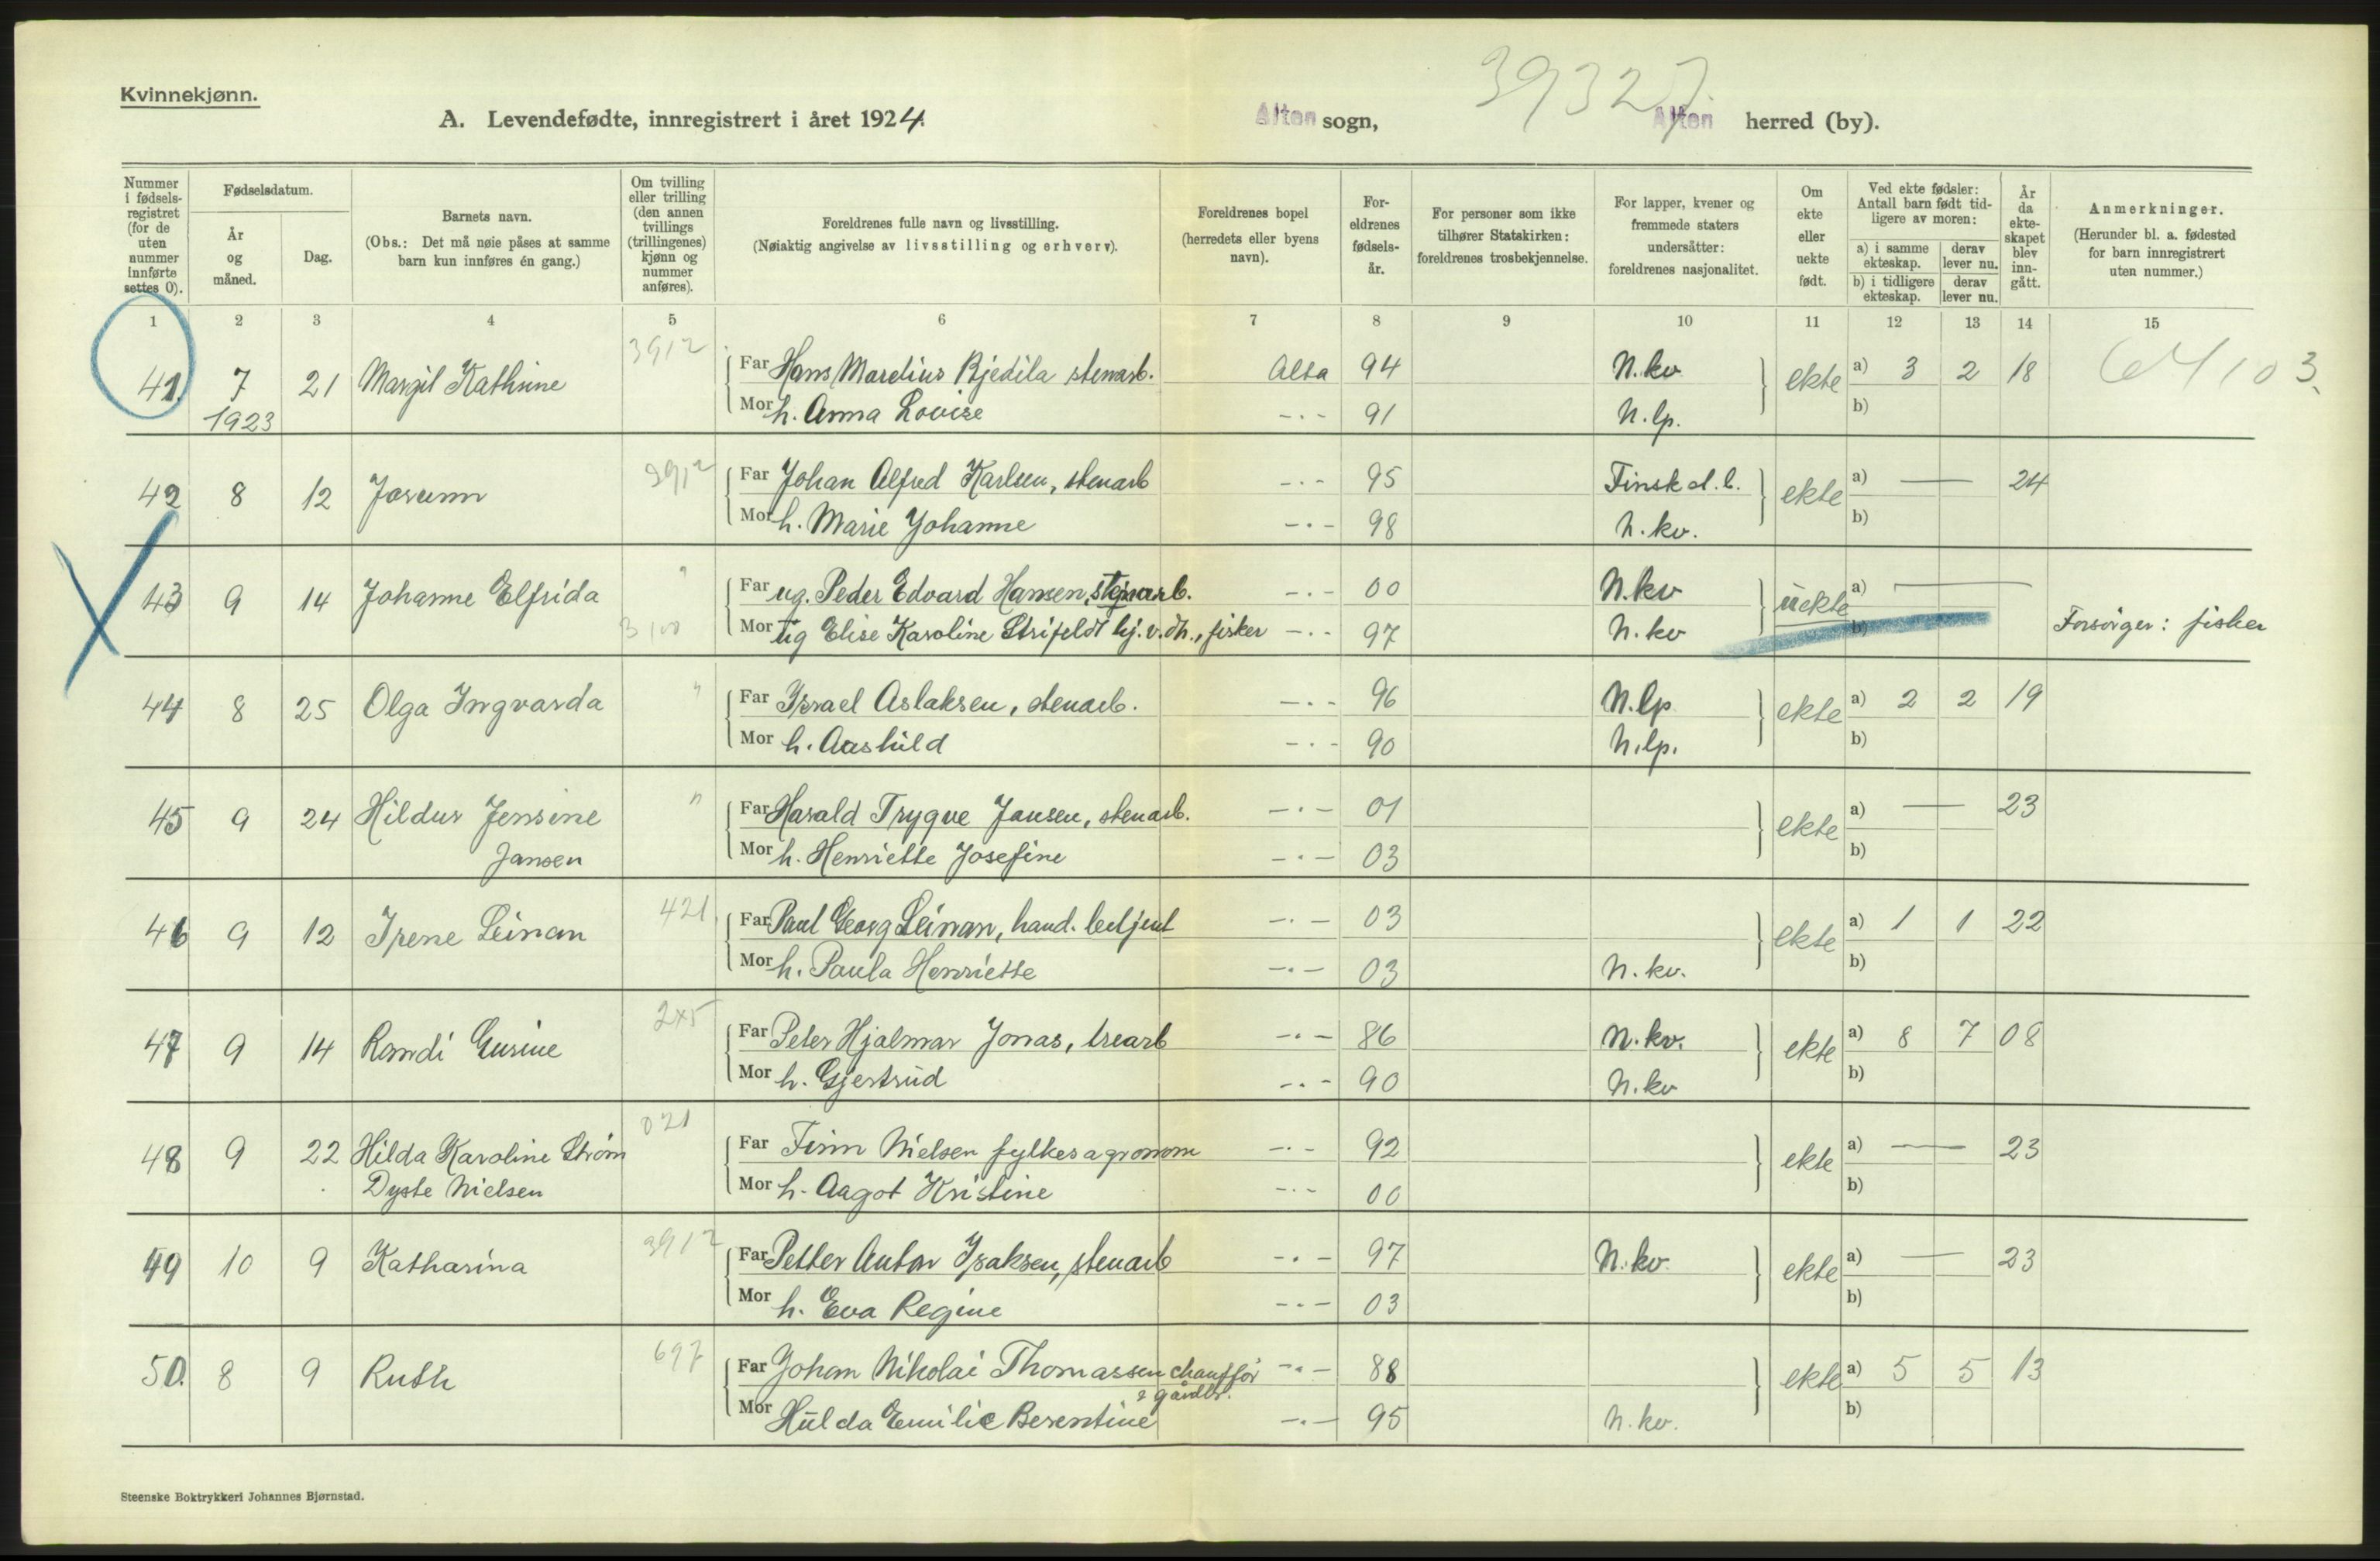 Kvinnekjønn.
39327
A. Levendefødte, innregistrert i året 1924. Alten sogn, Alten herred (by).
Nummer i fødsels-registret (for de uten nummer innførte settes 0).
Fødselsdatum.
År og måned.
Dag.
Barnets navn.
(Obs.: Det må nøie påses at samme barn kun innføres én gang.)
Om tvilling eller trilling (den annen tvillings (trillingenes) kjønn og nummer anføres).
Foreldrenes fulle navn og livsstilling.
(Nøiaktig angivelse av livsstilling og erhverv).
Foreldrenes bopel (herredets eller byens navn).
For-eldrenes fødsels-år.
For personer som ikke tilhører Statskirken: foreldrenes trosbekjennelse.
For lapper, kvener og fremmede staters undersåtter: foreldrenes nasjonalitet.
Om ekte eller uekte født.
Ved ekte fødsler: Antall barn født tid-ligere av moren:
a) i samme ekteskap. derav lever nu.
b) i tidligere ekteskap. derav lever nu.
År da ekte-skapet blev inn-gått.
Anmerkninger.
(Herunder bl. a. fødested for barn innregistrert uten nummer.)
1 2 3 4 5 6 7 8 9 10 11 12 13 14 15
41. 7 21 Margit Kathrine 3912 Far Hans Mardius Bjedila stenarb. Alta 94 N.kv ekte a) 3 2 18 64103.
1923 Mor h. Anna Lovise -.- 91 N.lp. b)
42 8 12 Jorunn 3912 Far Johan Alfred Karlsen, stenarb -.- 95 Finsk d.l. ekte a) — 24
Mor h. Marie Johanne -.- 98 N.kv. b)
43 9 14 Johanne Elfrida " Far ug. Peder Edvard Hansen, stenarb. -.- 00 N.kv uekte a) —
3100 Mor ug Elise Karoline Strifeldt hj.v.dh., fisker -.- 97 N.kv b) Forsörger: fisker
44 8 25 Olga Ingvarda " Far Israel Aslaksen, stenarb. -.- 96 N.lp ekte a) 2 2 19
Mor h. Aashild -.- 90 N.lp. b)
45 9 24 Hildur Jensine " Far Harald Trygve Jansen, stenarb. -.- 01 ekte a) — 23
Jansen Mor h. Henriette Josefine -.- 03 b)
46 9 12 Irene Leinan 421. Far Paul Georg Leinan, hand. betjent -.- 03 ekte a) 1 1 22
Mor h. Paula Henriette -.- 03 N.kv. b)
47 9 14 Randi Gurine 245 Far Peter Hjalmar Jonas, trearb -.- 86 N.kv. ekte a) 8 7 08
Mor h. Gjertrud -.- 90 N.kv b)
48 9 22 Hilda Karoline Ström 021 Far Finn Nielsen fylkesagronom -.- 92 ekte a) — 23
Dyste Nielsen Mor h. Aagot Kristine -.- 00 b)
49 10 9 Katharina 3912 Far Petter Anton Isaksen, stenarb -.- 97 N.kv. ekte a) — 23
Mor h. Eva Regine -.- 03 b)
50. 8 9 Ruth 697 Far Johan Nikolai Thomassen chaufför -.- 88 ekte a) 5 5 13
gårdbr.
Mor Hulda Emilie Berentine -.- 95 N.kv. b)
Steenske Boktrykkeri Johannes Bjørnstad.